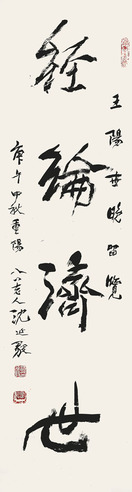 王陽世晓留覽
經綸濟世
庚午中秋重陽
八十老人沈延毅